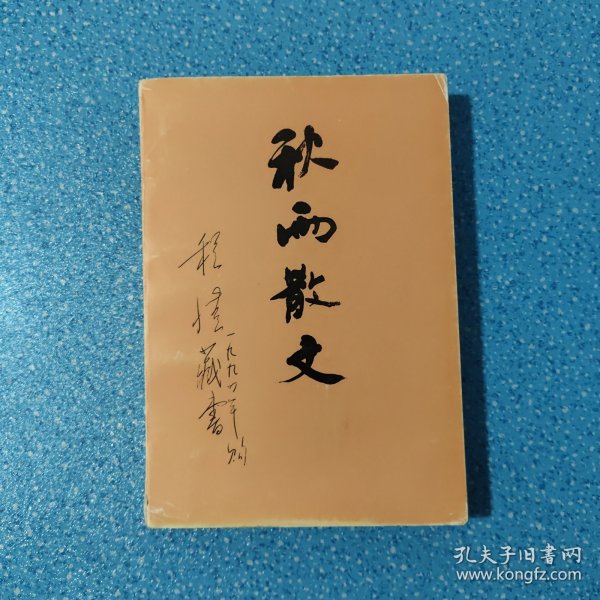 秋雨散文
程
藏书
一九九四年购
孔夫子旧書网
www.kongfz.com